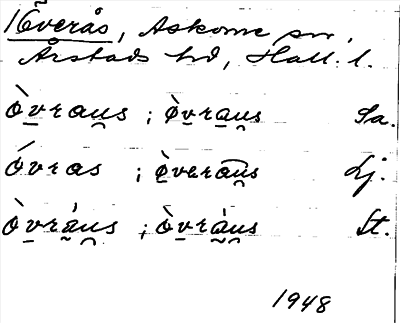 16verås, Askome sn,
Årstads hd, Hall. l.
òvraus ; òvraus Sa.
óvras ; òveraus Lj.
òvràus ; òvràus St.
1948